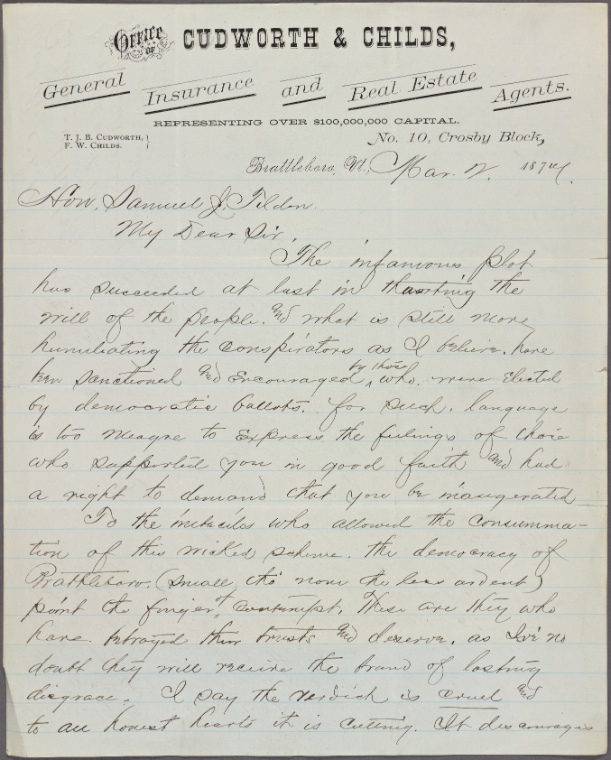 Office of CUDWORTH & CHILDS,
General Insurance and Real Estate Agents.
REPRESENTING OVER $100,000,000 CAPITAL.
T. J. B. CUDWORTH, }
F. W. CHILDS. }
No. 10, Crosby Block,
Brattleboro, Vt., Mar. 12. 1877.
Hon. Samuel J. Tilden.
My Dear Sir,
The infamous plot
has succeeded at last in thwarting the
will of the people. and what is still more
humiliating the conspirators as I believe. have
been sanctioned and Encouraged by those who. were Elected
by democratic ballots. for such. language
is too meagre to Express the feelings of those
who supported you in good faith and had
a right to demand that you be inaugurated
To the imbeciles who allowed the consumma-
tion of this wicked scheme. the democracy of
Brattleboro. (small tho' none the less ardent)
point the finger of contempt. These are they who
have. betrayed their trusts and deserve, as I've no
doubt they will receive the brand of lasting
disgrace. I say the verdict is cruel and
to all honest hearts it is cutting. It discourages